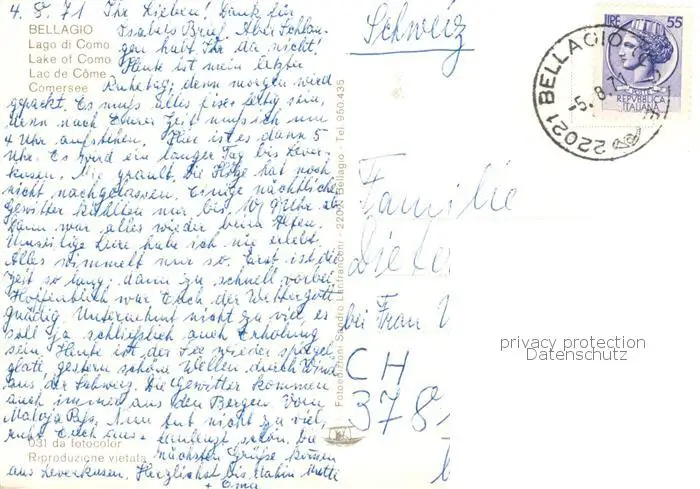 4. 8. 71 Ihr Lieben! Dank für
BELLAGIO Isabels Brief. Aber Schlan-
Lago di Como gen habt Ihr da nicht!
Lake of Como Heute ist mein letzter
Lac de Côme Ruhetag, denn morgen wird
Comersee
gepackt. Es muß alles fertig sein,
denn nach Eurer Zeit muß ich um
4 Uhr aufstehen. Hier ist es dann 5
Uhr. Es wird ein langer Tag bis Lever-
kusen. Mir grault. Die Hitze hat noch
nicht nachgelassen. Einige nächtliche
Gewitter kühlten nur bis 10 Uhr ab
dann war alles wieder beim Alten.
habe ich nie erlebt.
Alles wimmelt nur so. Erst ist die
Zeit so lang, dann zu schnell vorbei.
Hoffentlich war Euch der Wettergott
gnädig. Unternehmt nicht zu viel, es
soll ja schließlich auch Erholung
sein. Heute ist der See wieder spiegel
glatt, gestern schöne Wellen durch Wind
aus der Schweiz. Die Gewitter kommen
auch immer aus den Bergen. Vom
Maloja Paß. Nun tut nicht zu viel,
ruht Euch aus - faulenzt schön. Die
031 da fotocolor
nächsten Grüße kommen
Riproduzione vietata
aus Leverkusen. Herzlichst bis dahin Mutti
+ Oma
Fotoedizioni Sandro Lanfranconi - 22021 Bellagio - Tel. 950.435
Schweiz
LIRE 55
REPVBBLICA
ITALIANA
22021 BELLAGIO
-5.8.71
Familie
bei Frau
CH
378
privacy protection
Datenschutz